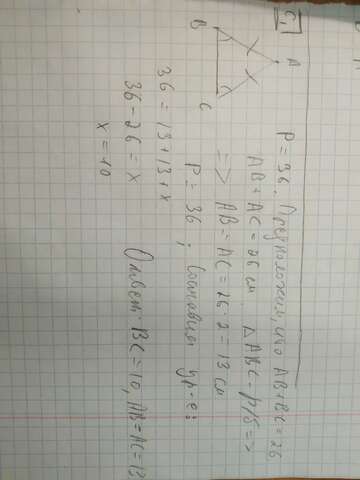 C₁
B
A
C
P = 36. Предположим, что AB + BC = 26
AB + AC = 26 см. △ ABC - р/б =>
=> AB = AC = 26 : 2 = 13 см
P = 36; Составим ур-е:
36 = 13 + 13 + x
36 - 26 = x
x = 10
Ответ: BC = 10, AB = AC = 13